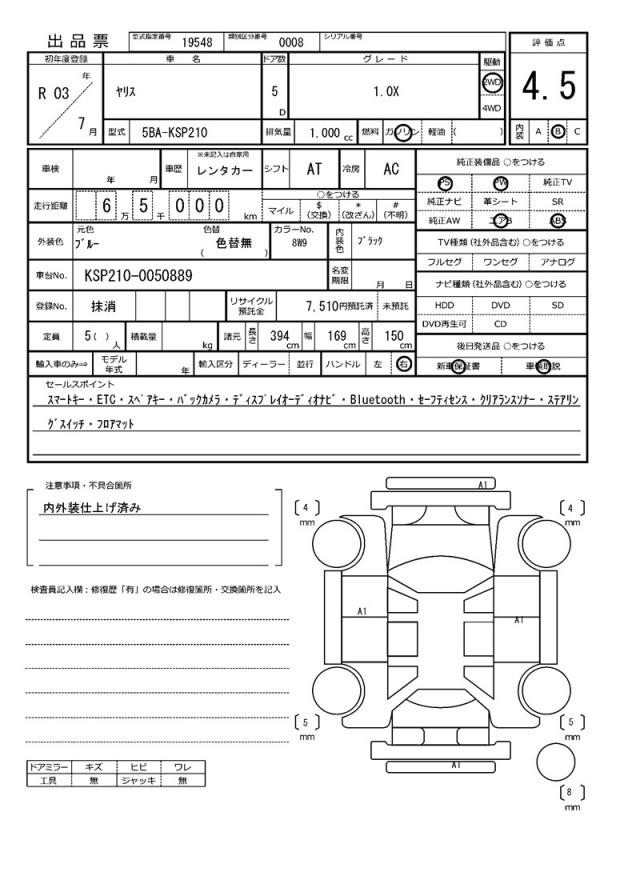 出品票 型式指定番号 19548 類別区分番号 0008 シリアル番号
評価点
4.5
内装 A B C
初年度登録 車名 ドア数 グレード 駆動
R 03 年 7 月
ヤリス 5 D 1.0X 2WD 4WD
型式 5BA-KSP210 排気量 1.000 cc 燃料 ガソリン 軽油 ( )
車検 年 月 車歴 ※未記入は自家用 レンタカー シフト AT 冷房 AC
走行距離 6 万 5 千 0 0 0 km ○をつける
マイル $ (交換) * (改ざん) # (不明)
外装色 元色 ブルー 色替 ( 色替無 ) カラーNo. 8W9 内装色 ブラック
車台No. KSP210-0050889 名変期限 月 日
登録No. 抹消 リサイクル預託金 7,510円預託済 未預託
定員 5( ) 人 積載量 kg 諸元 長さ 394 cm 幅 169 cm 高さ 150 cm
輸入車のみ⇒ モデル年式 年 輸入区分 ディーラー 並行 ハンドル 左 右
純正装備品 ○をつける
PS PW 純正TV
純正ナビ 革シート SR
純正AW エアB ABS
TV種類(社外品含む)○をつける
フルセグ ワンセグ アナログ
ナビ種類(社外品含む)○をつける
HDD DVD SD
DVD再生可 CD
後日発送品 ○をつける
新車保証書 車輌取説
セールスポイント
スマートキー・ETC・スペアキー・バックカメラ・ディスプレイオーディオナビ・Bluetooth・セーフティセンス・クリアランスソナー・ステアリン
グスイッチ・フロアマット
注意事項・不具合箇所
内外装仕上げ済み
検査員記入欄:修復歴「有」の場合は修復箇所・交換箇所を記入
ドアミラー キズ ヒビ ワレ
工具 無 ジャッキ 無
A1
4 mm
4 mm
A1
A1
5 mm
5 mm
A1
8 mm